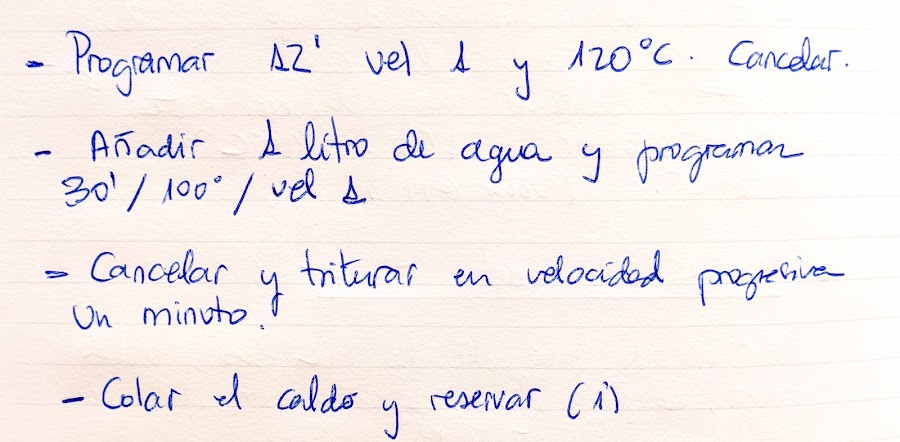 - Programar 12' vel 1 y 120°C. Cancelar.
- Añadir 1 litro de agua y programar
30' / 100° / vel 1
- Cancelar y triturar en velocidad progresiva
un minuto.
- Colar el caldo y reservar (1)